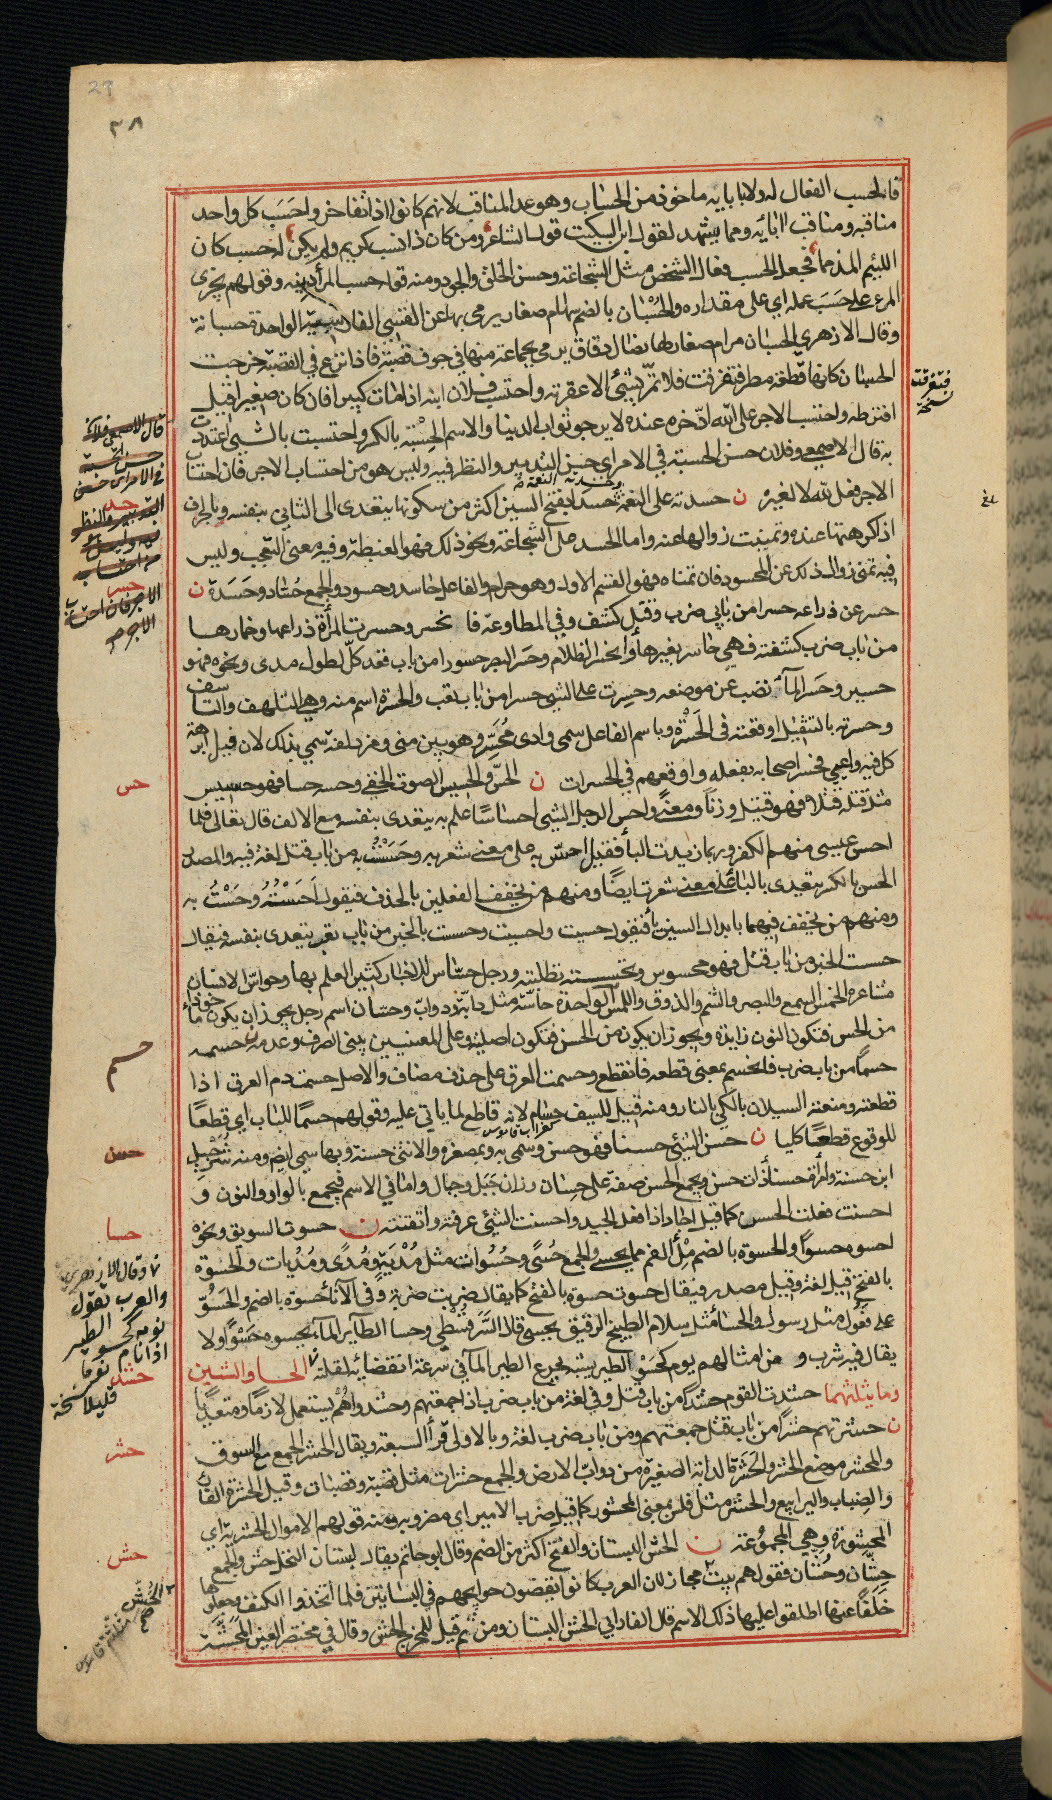 29
٣٨
فالحسب الفعال له ولابائه ماخوذ من الحساب وهو عد المناقب لانهم كانوا اذا تفاخروا حسب كل واحد
مناقبه ومناقب ابائه ومما يشهد لقول ابن السكيت قول الشاعر ومن كان ذا نسب كريم ولم يكن له حسب كان
اللئيم المذمما فجعل الحسب فعال الشخص مثل الشجاعة وحسن الخلق والجود ومنه قوله حسب المرأ دينه وقولهم يجزى
المرء على حسب عمله اي على مقداره والحسبان بالضم سهام صغار يرمى بها عن القسي الفارسية الواحدة حسبانة
وقال الازهري الحسبان مرام صغار لها نصال دقاق يرمى بجماعة منها في جوف قصبة فاذا نزع في القصبة خرجت
الحسبان كانها قطعة مطر فتفرقت فلا تمر بشئ الا عقرته واحتسب فلان ابنه اذا مات كبيرا فان كان صغيرا قيل
افترطه واحتسب الاجر على الله ادخره عنده لا يرجو ثواب الدنيا والاسم الحسبة بالكسر واحتسبت بالشيئ اعتددت
به قال الاصمعي وفلان حسن الحسبة في الامر اي حسن التدبير والنظر فيه وليس هو من احتساب الاجر فان احتساب
الاجر فعل لله لا لغيره ن حسدته على النعمة وحسدته النعمة حسدا بفتح السين اكثر من سكونها يتعدى الى الثاني بنفسه وبالحرف
اذا كرهتها عنده وتمنيت زوالها عنه واما الحسد على الشجاعة ونحو ذلك فهو الغبطة وفيه معنى التعجب وليس
فيه تمنى زوال ذلك عن المحسود فان تمناه فهو القسم الاول وهو حرام والفاعل حاسد وحسود والجمع حساد وحسدة ن
حسر عن ذراعه حسرا من بابي ضرب وقتل كشف وفي المطاوعة فانحسر وحسرت المرأة ذراعها وخمارها
من باب ضرب كشفته فهي حاسر بغيرها وانحسر الظلام وحسر البصر حسورا من باب قعد كل لطول مدى ونحوه فهو
حسير وحسر الماء نضب عن موضعه وحسرت على الشيئ حسرا من باب تعب والحسرة اسم منه وهي التلهف والتأسف
وحسرته بالتثقيل اوقعته في الحسرة وباسم الفاعل سمى وادى محسر وهو بين منى ومزدلفة سمي بذلك لان فيل ابرهة
كل فيه واعيى فحسر اصحابه بفعله واوقعهم في الحسرات ن الحس والحسيس الصوت الخفي وحسه حسا فهو حسيس
مثل قتله قتلا فهو قتيل وزنا ومعنى واحس الرجل الشيئ احساسا علم به يتعدى بنفسه مع الالف قال تعالى فلما
احس عيسى منهم الكفر وربما زيدت البا فقيل احس به على معنى شعر به وحسست به من باب قتل لغة فيه والمصدر
الحس بالكسر يتعدى بالبا على معنى شعرت ايضا ومنهم من يخفف الفعلين بالحذف فيقول احسته وحست به
ومنهم من يخفف فيهما بابدال السين يا فيقول حسيت واحسيت وحسست بالخبر من باب تعب يتعدى بنفسه فيقال
حسست الخبر من باب قتل فهو محسوس وتحسسته تطلبته ورجل حساس للاخبار كثير العلم بها وحواس الانسان
مشاعره الخمس السمع والبصر والشم والذوق واللمس الواحدة حاسة مثل دابة ودواب وحسان اسم رجل يجوز ان يكون ماخوذا
من الحس فتكون النون زايدة ويجوز ان يكون من الحسن فتكون اصلية وعلى المعنيين يبنى الصرف وعدمه ن حسمه
حسما من باب ضرب فانحسم بمعنى قطعه فانقطع وحسمت العرق على حذف مضاف والاصل حسمت دم العرق اذا
قطعته ومنعته السيلان بالكي بالنار ومنه قيل للسيف حسام لانه قاطع لما ياتي عليه وقولهم حسما للباب اي قطعا
للوقوع قطعا كليا ن حسن الشيئ حسنا فهو حسن وسمى به وبمصغره والانثى حسنة وبها سمي ايضا ومنه شرحبيل
ابن حسنة وامرأة حسنا ذات حسن ويجمع الحسن صفة على حسان وزان جبل وجبال واما في الاسم فيجمع بالواو والنون و
احسنت فعلت الحسن كما قيل اجاد اذا فعل الجيد واحسنت الشيئ عرفته واتقنته ن حسوت السويق ونحوه
احسوه حسوا والحسوة بالضم ملأ الفم مما يحسى والجمع حسى وحسوات مثل مدية ومدى ومديات والحسوة
بالفتح قيل لغة وقيل مصدر فيقال حسوت حسوة بالفتح كما يقال ضربت ضربة وفي الاناء حسوة بالضم والحسو
على فعول مثل رسول والحسا مثل سلام الطبيخ الرقيق يحسى قال السرقسطي وحسا الطاير الماء يحسوه حسوا ولا
يقال فيه شرب و من امثالهم يوم كحسو الطير يشبه بجرع الطير الماء في سرعة انقضائه لقلته الحا والشين
وما يثلثهما حشدت القوم حشدا من باب قتل وفي لغة من باب ضرب اذا جمعتهم وحشدوا هم يستعمل لازما ومتعديا
ن حشرتهم حشرا من باب قتل جمعتهم ومن باب ضرب لغة وبالاولى قرأ السبعة ويقال الحشر الجمع مع السوق
والمحشر موضع الحشر والحشرة الدابة الصغيرة من دواب الارض والجمع حشرات مثل قصبة وقصبات وقيل الحشرة الفأر
والضباب واليرابيع والحشر مثل فلس بمعنى المحشور كما قيل ضرب الامير اي مضروبه ومنه قولهم الاموال الحشرية اي
المحشورة وهي المجموعة ن الحش البستان والفتح اكثر من الضم وقال ابو حاتم يقال لبستان النخل حش والجمع
حشان وحشان فقولهم بيت الحش مجاز لان العرب كانوا يقضون حوايجهم في البساتين فلما اتخذوا الكنف وجعلوها
خلفا عنها اطلقوا عليها ذلك الاسم قال الفارابي الحش البستان ومن ثم قيل للمخرج الحش وقال في مختصر العين المحشة
فتفرقت
نسخة
حسد
حسر
حس
حسم
حسن
حسا
وقال الازهري
والعرب تقول
نومه كحسو الطير
اذا نام نوما
قليلا نسخة
حشد
حشر
حش